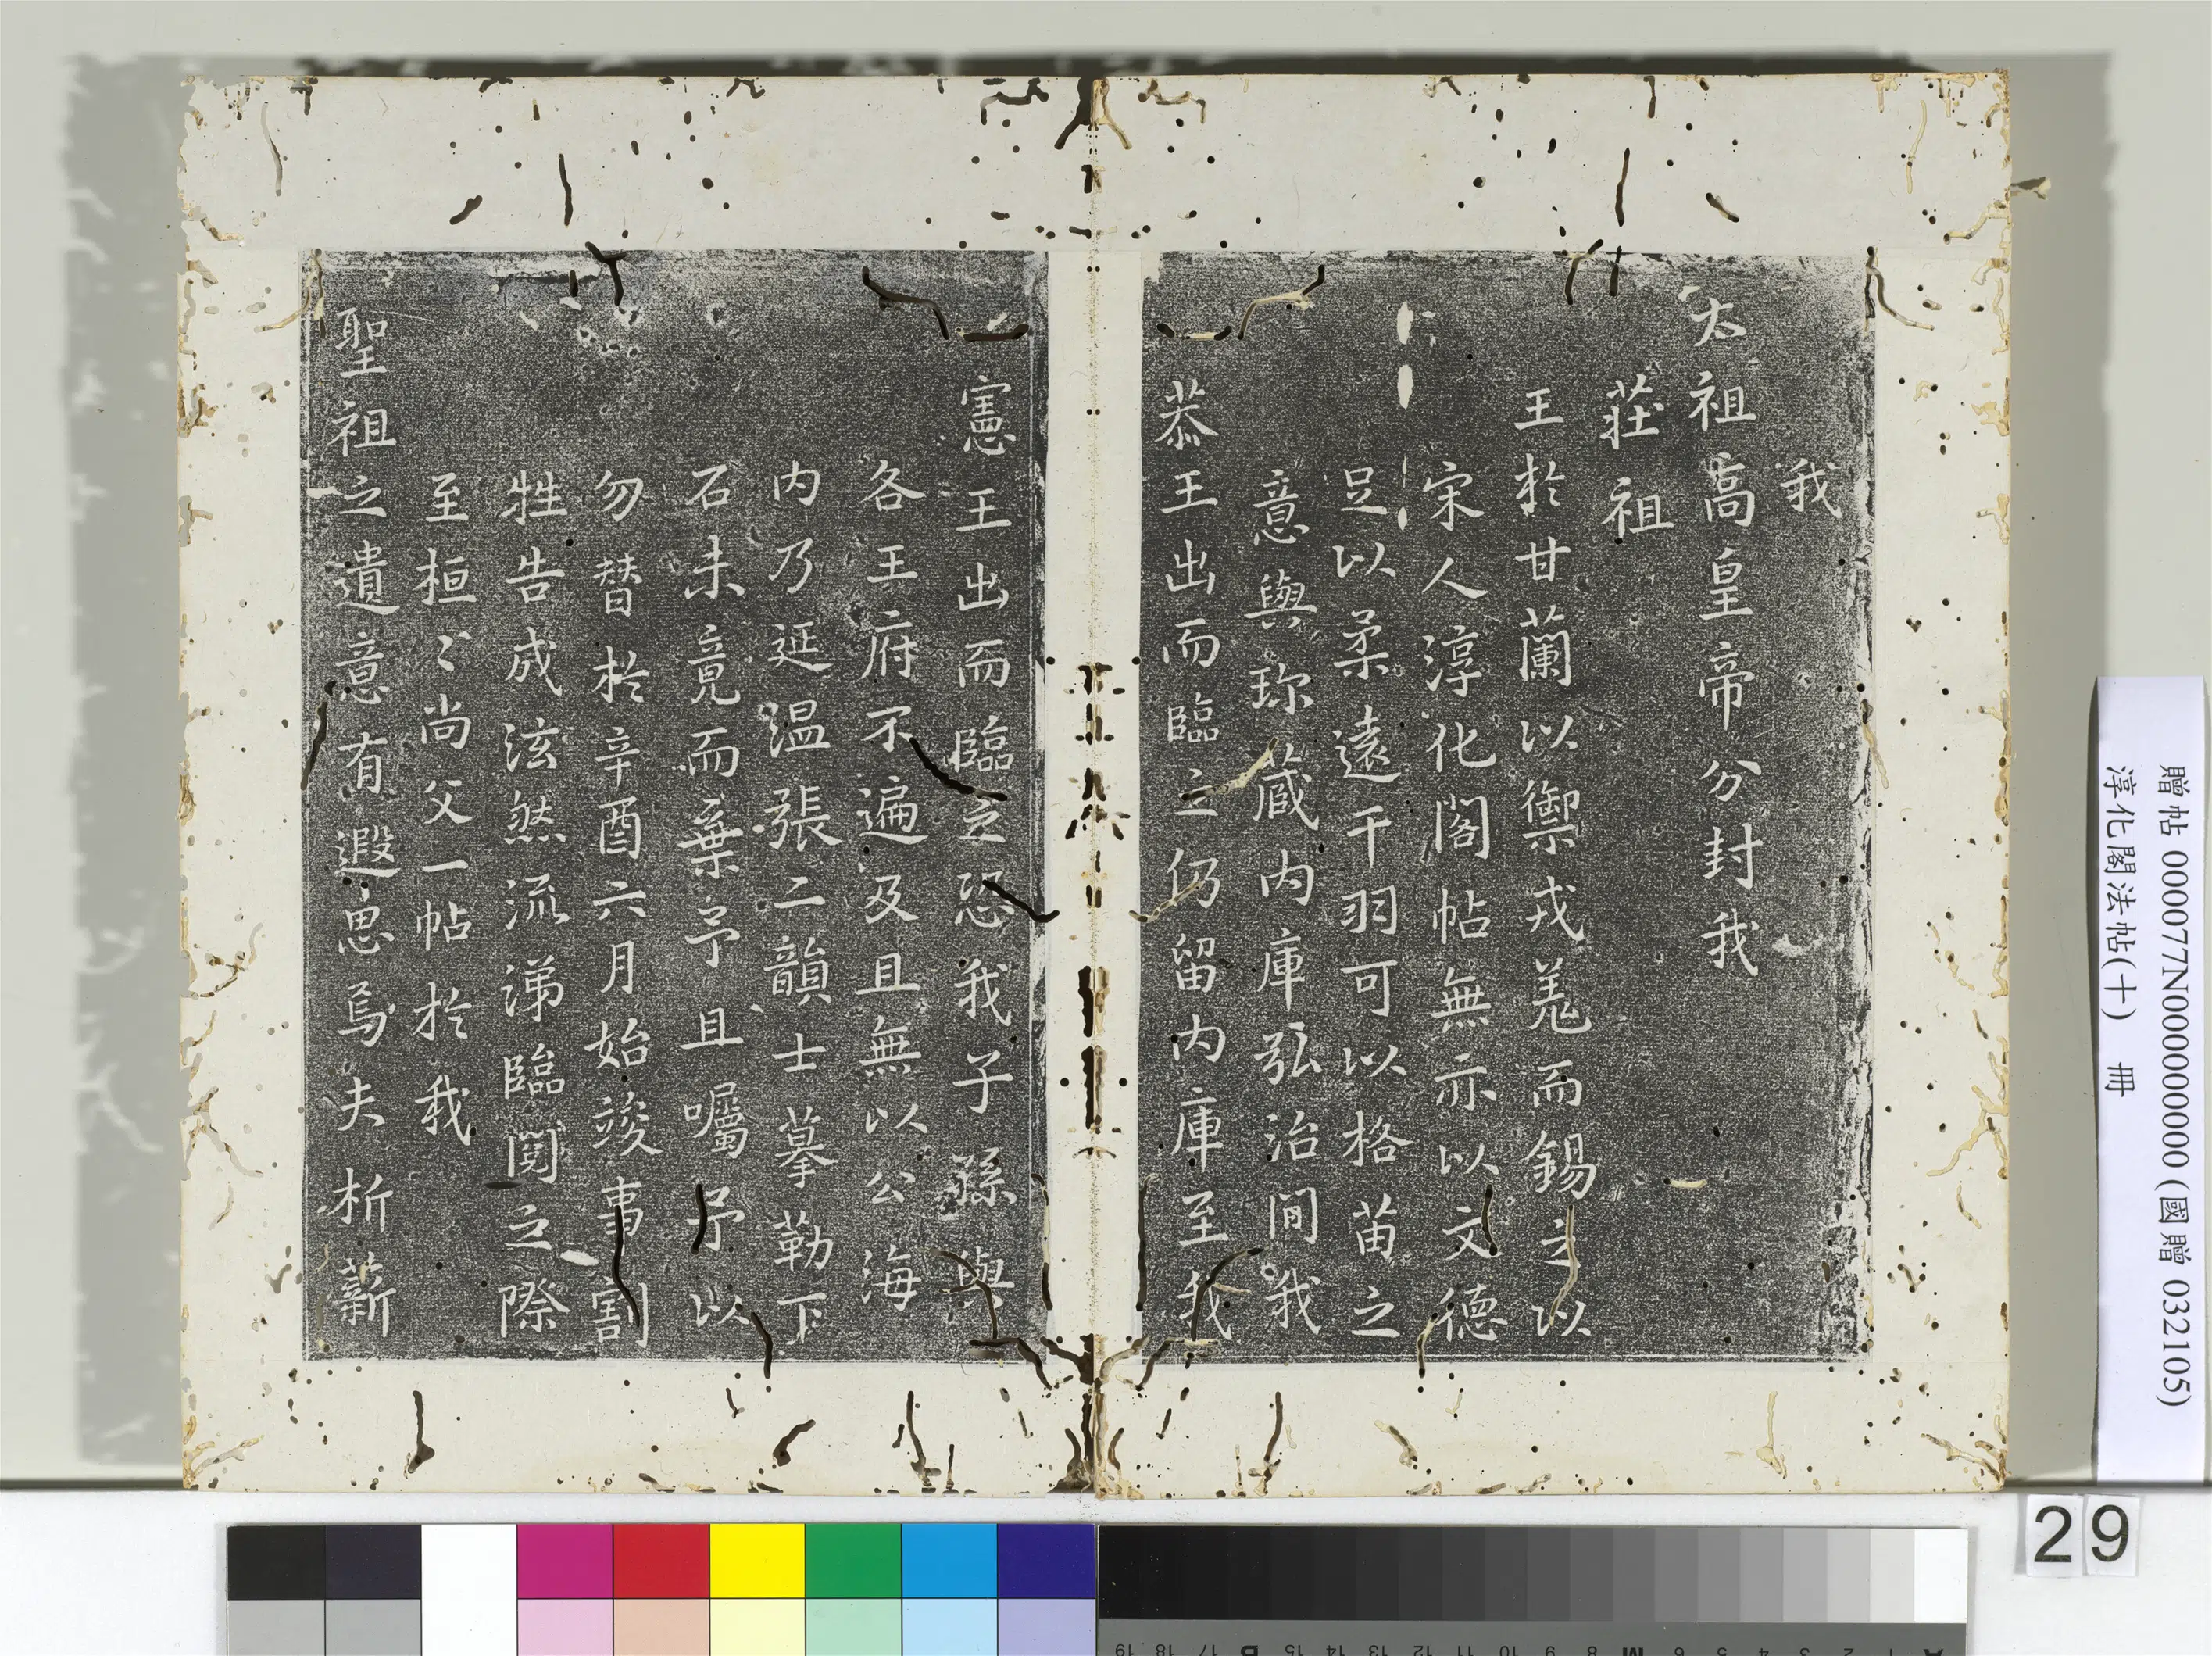 我
太祖高皇帝分封我
莊祖
王於甘蘭以禦戎羌而錫之以
宋人淳化閣帖無亦以文德
足以柔遠干羽可以格苗之
意與珎蔵内庫弘治間我
恭王出而臨之仍留内庫至我
憲王出而臨之恐我子孫與
各王府不遍及且無以公海
内乃延温張二韻士摹勒下
石未竟而棄予且囑予以
勿替於辛酉六月始竣事割
牲告成泫然流涕臨閲之際
至桓〻尚父一帖於我
聖祖之遺意有遐思焉夫析薪
贈帖 000077N000000000 (國贈 032105)
淳化閣法帖(十) 冊
29
19 18 17 B 15 14 13 12 11 10 9 8 M 6 5 4 3 2 1 A